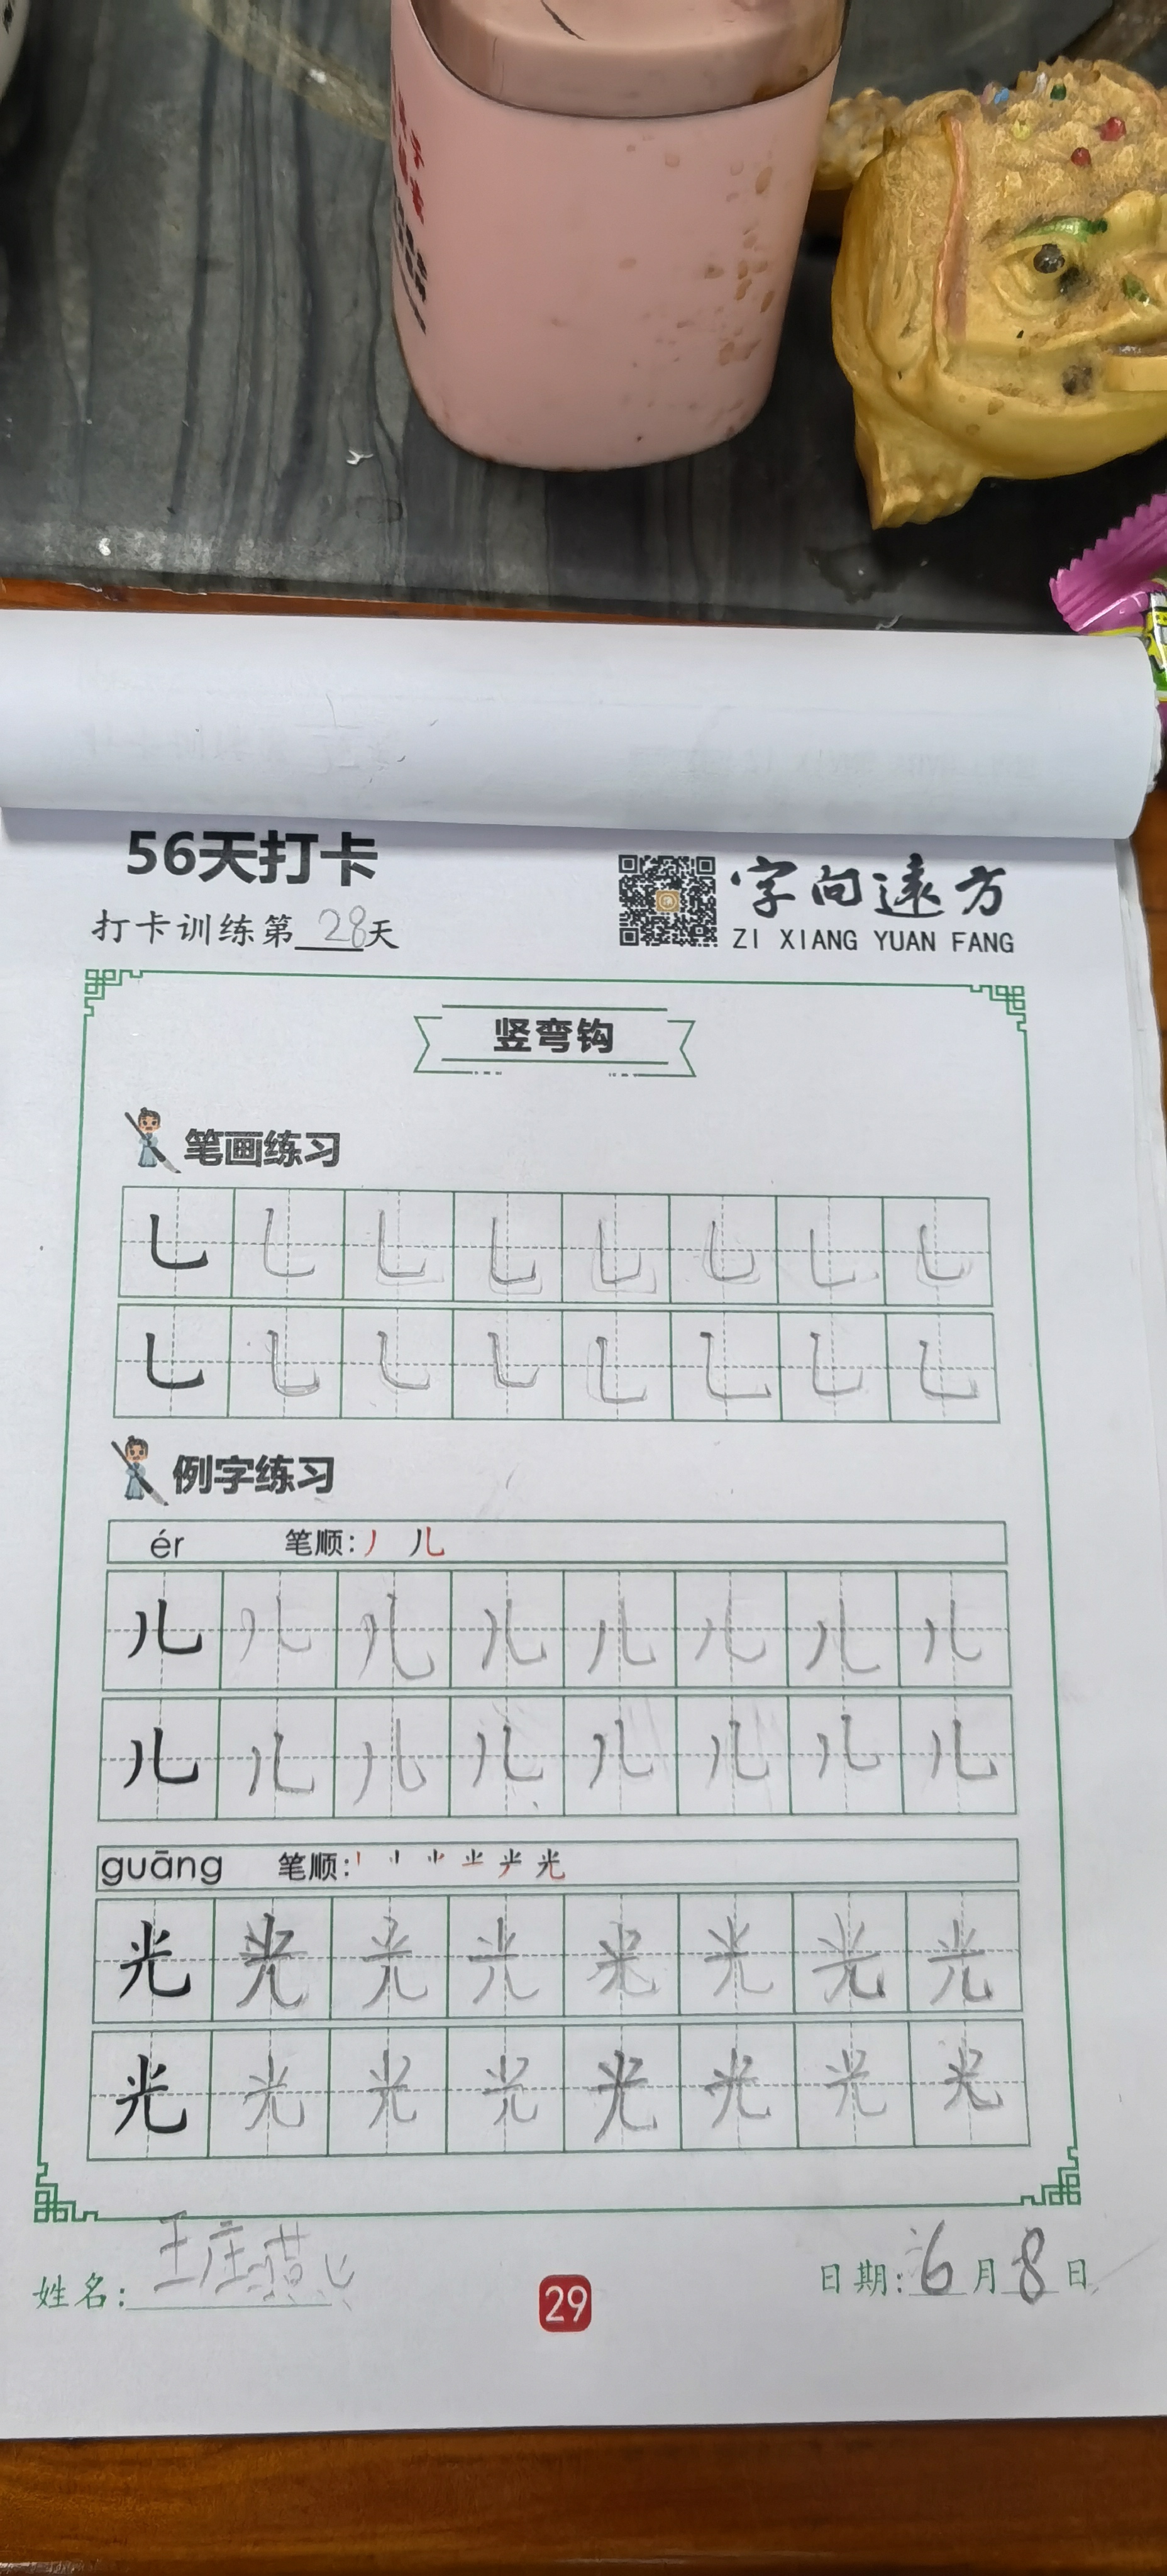 56天打卡
打卡训练第28天
字向遠方
ZI XIANG YUAN FANG
竖弯钩
笔画练习
乚 乚 乚 乚 乚 乚 乚 乚
乚 乚 乚 乚 乚 乚 乚 乚
例字练习
ér 笔顺: 丿 儿
儿 儿 儿 儿 儿 儿 儿 儿
儿 儿 儿 儿 儿 儿 儿 儿
guāng 笔顺: 光
光 光 光 光 光 光 光 光
光 光 光 光 光 光 光 光
姓名: 王
29
日期: 6月8日